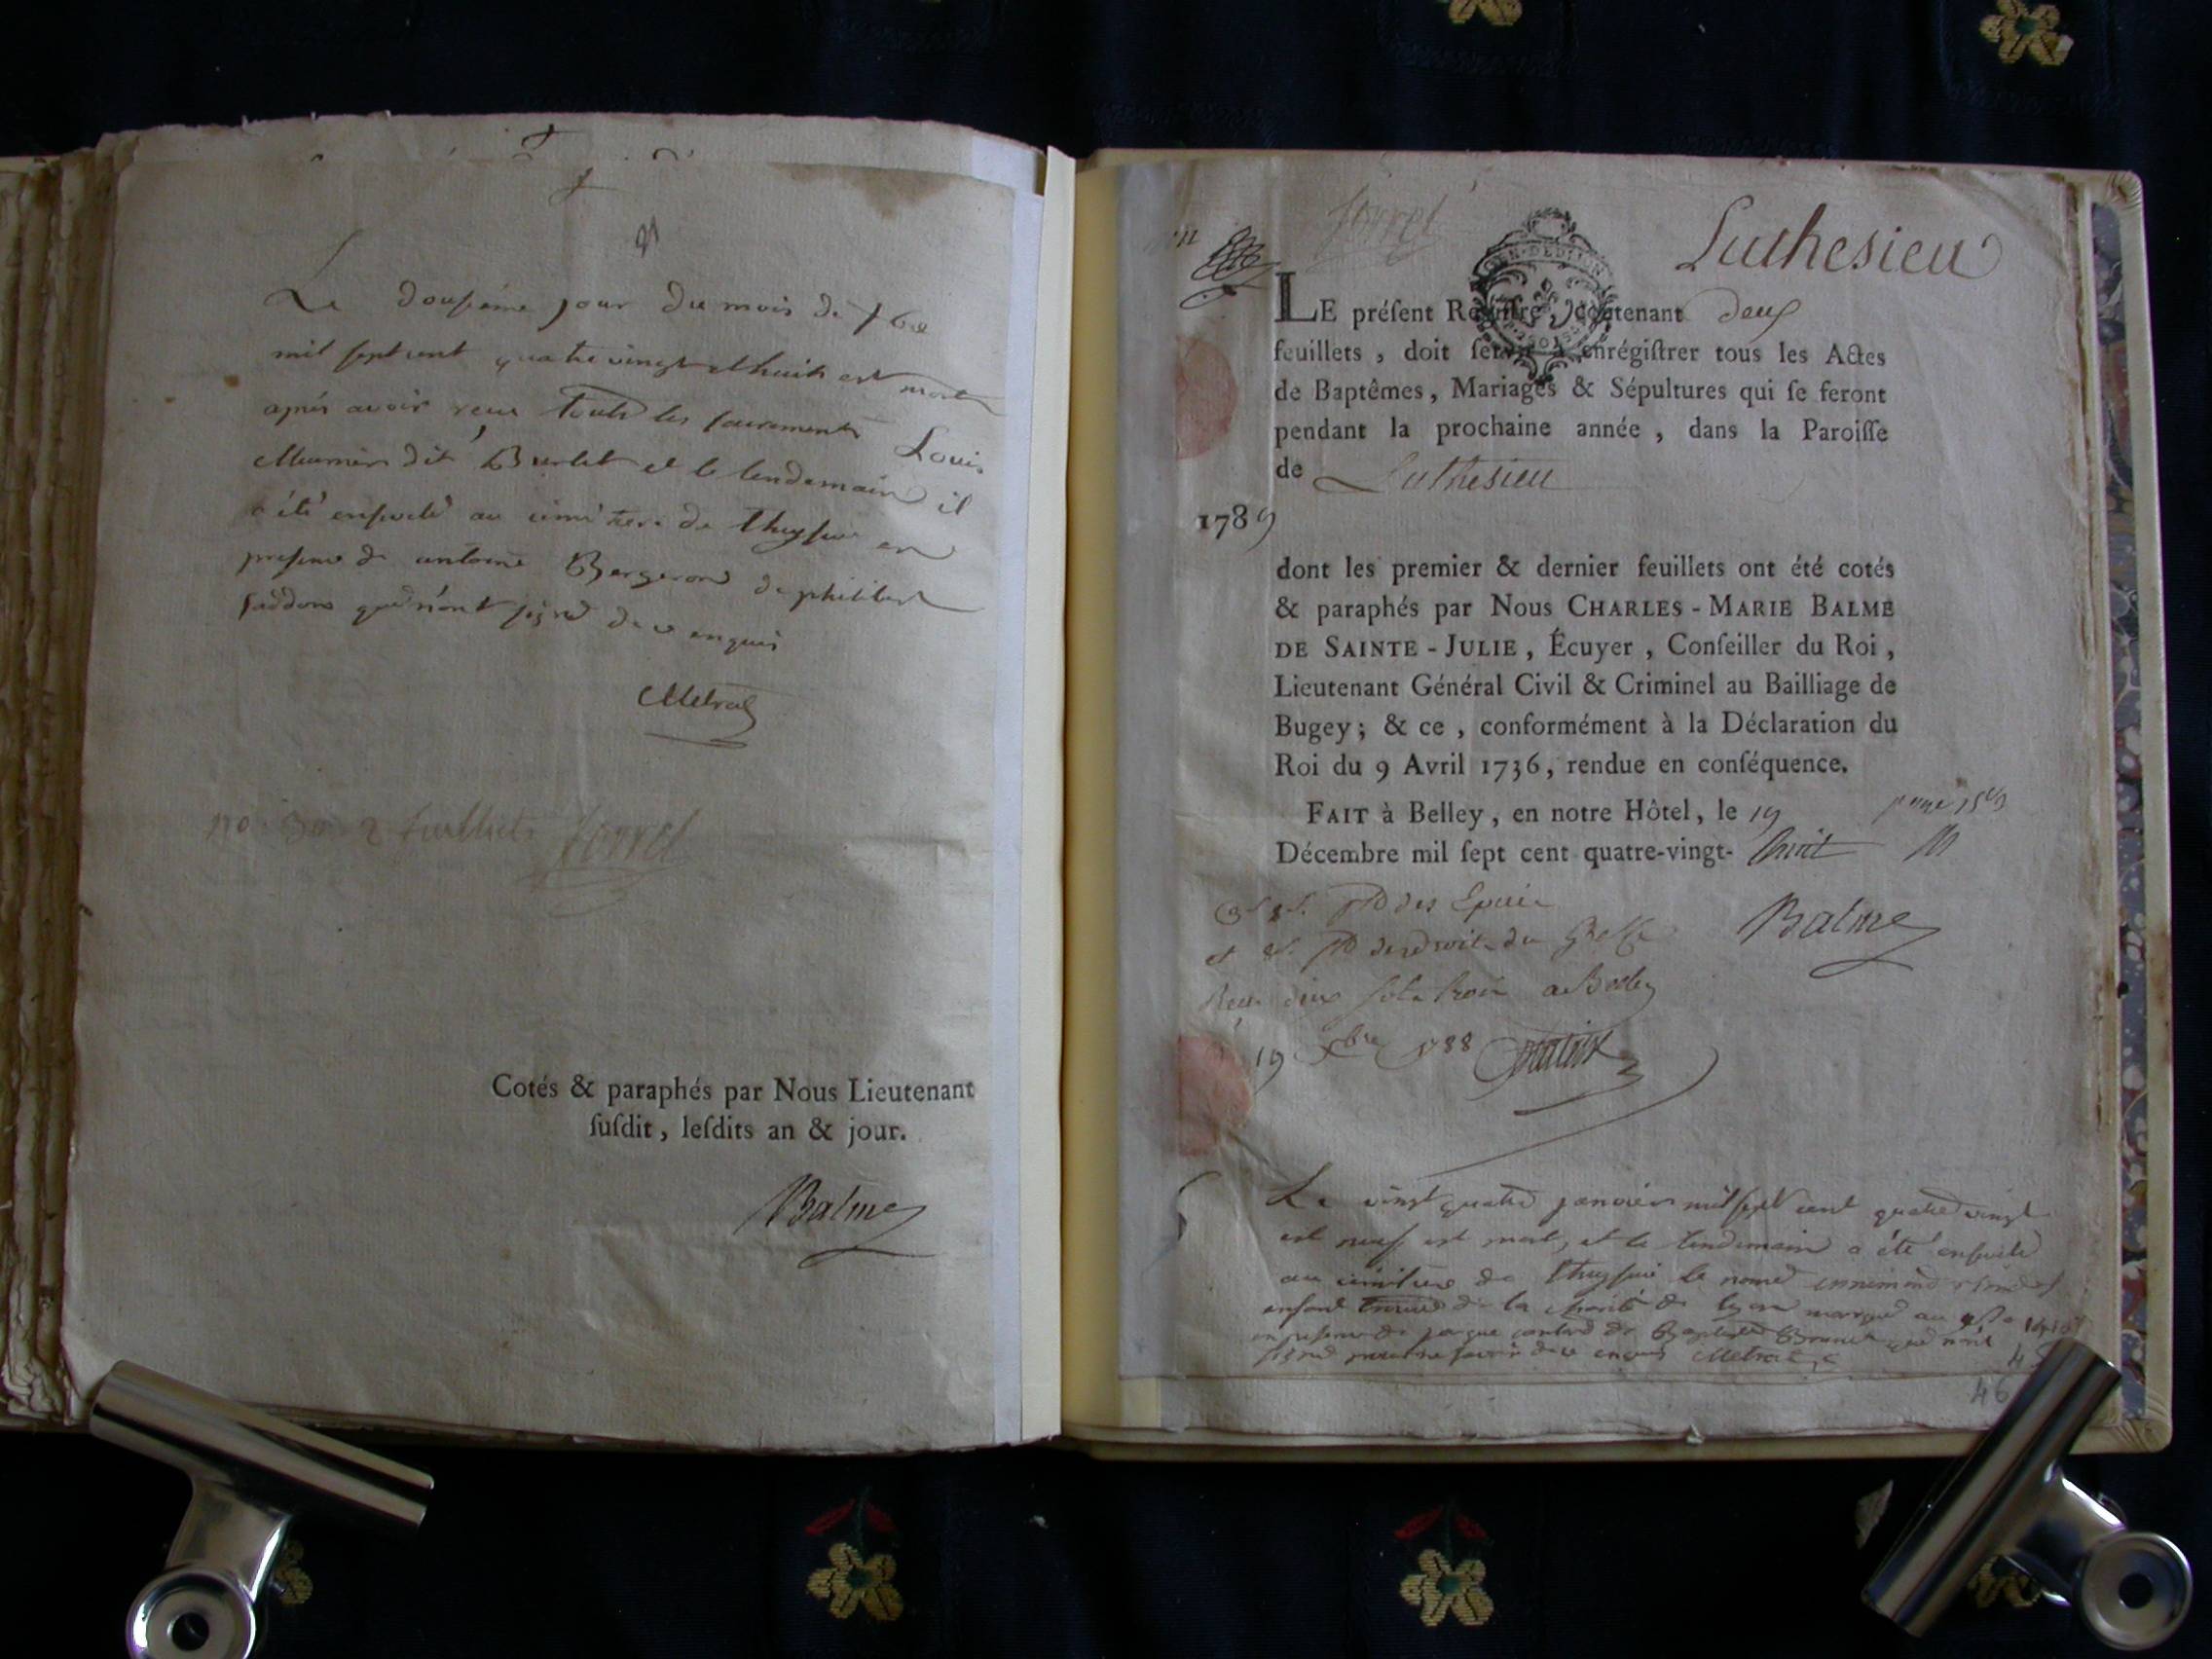 Le dousiéme jour du mois de 7bre
mil sept cent quatre vingt et huit est mort
aprés avoir reçu touts les sacrements Louis
dit Burlet et le lendemain il
a été enseveli au cimitiere de thuysieu en
presence de antoine Bergerond de philibert
qui n'ont signé de ce enquis
Metral
no. 30. 2 feuillets Jorrel
Cotés & paraphés par Nous Lieutenant
ſuſdit, leſdits an & jour.
Balme
Jorrel
Luthesieu
GEN. DE DIJON
LE préſent Regiſtre, contenant deux
feuillets, doit ſervir à enrégiſtrer tous les Actes
de Baptêmes, Mariages & Sépultures qui ſe feront
pendant la prochaine année, dans la Paroiſſe
de Luthesieu
1789
dont les premier & dernier feuillets ont été cotés
& paraphés par Nous CHARLES-MARIE BALME
DE SAINTE-JULIE, Écuyer, Conſeiller du Roi,
Lieutenant Général Civil & Criminel au Bailliage de
Bugey; & ce, conformément à la Déclaration du
Roi du 9 Avril 1736, rendue en conſéquence.
FAIT à Belley, en notre Hôtel, le 19
Décembre mil ſept cent quatre-vingt- huit
Balme
et des droits du Greffe
Reçu dix sols trois a Belley
19 Xbre 1788
Le vingt quatre janvier mil sept cent quatre vingt
et neuf est mort, et le lendemain a été enseveli
au cimitiere de thuysieu le nomé
enfant trouvé de la charité de lyon marqué au
en presence de jacque de Baptiste Brunet qui n'ont
signé pour ne savoir de ce enquis Metral
45
46